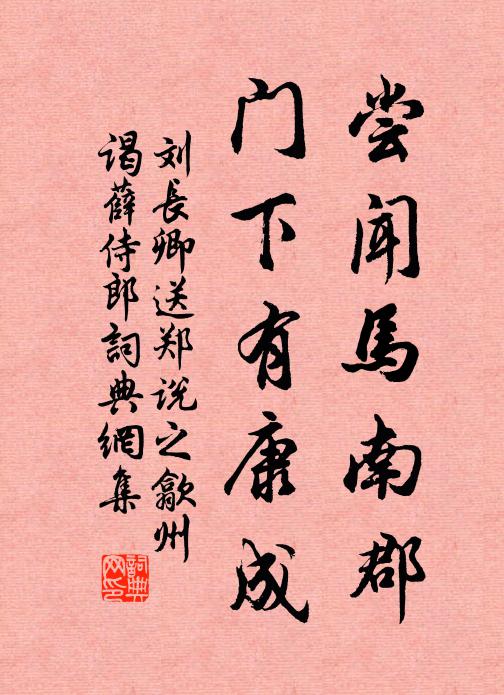 尝闻馬南郡
门下有康成
刘長卿送郑说之歙州
谒薛侍郎詞典網集
詞典网印